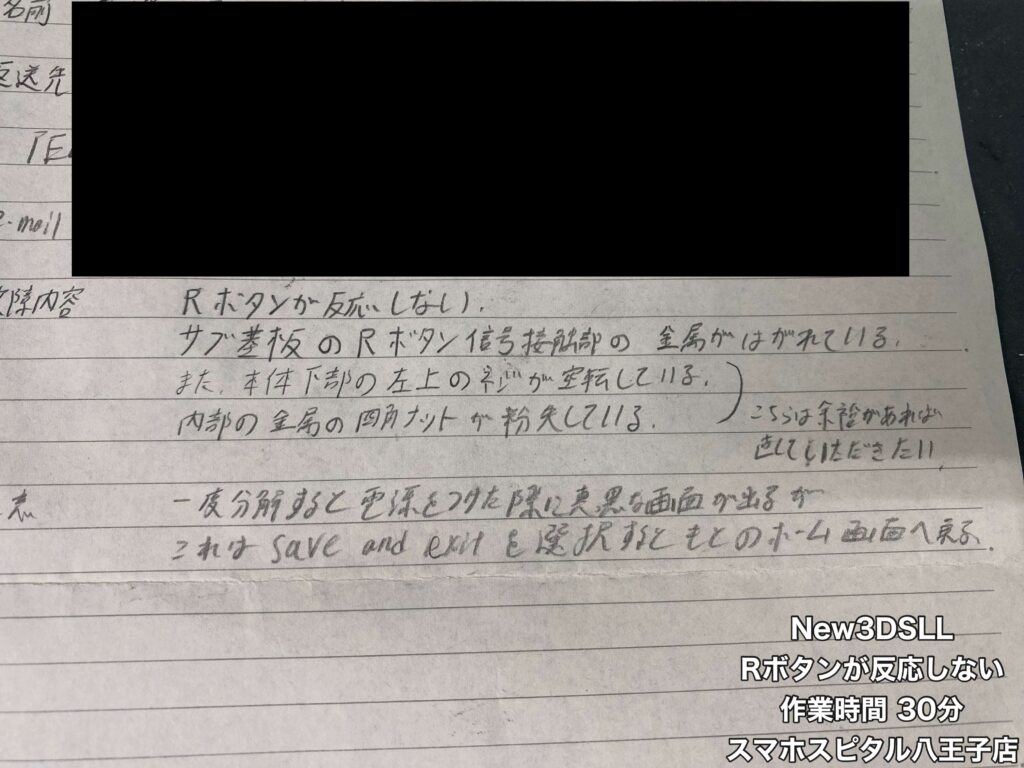 名前
返送先
TE
e-mail
故障内容 Rボタンが反応しない.
サブ基板のRボタン信号接触部の 金属がはがれている.
また、本体下部の左上のネジが空転している.
内部の金属の四角ナットが紛失している.
こちらは余裕があれば
直していただきたい
一度分解すると電源をつけた際に真黒な画面が出るが
これは save and exit を選択するともとのホーム画面へ戻る.
New3DSLL
Rボタンが反応しない
作業時間 30分
スマホスピタル八王子店